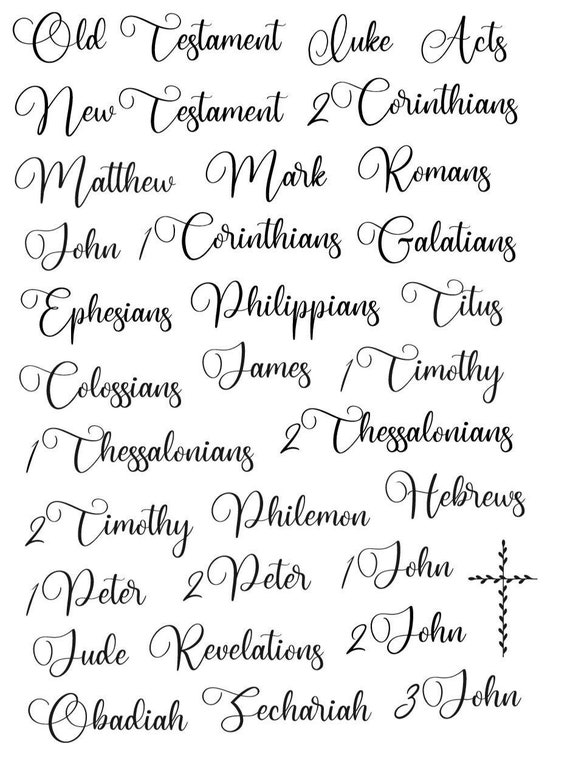 Old Testament Luke Acts
New Testament 2 Corinthians
Matthew Mark Romans
John 1 Corinthians Galatians
Ephesians Philippians Titus
Colossians James 1 Timothy
1 Thessalonians 2 Thessalonians
2 Timothy Philemon Hebrews
1 Peter 2 Peter 1 John
Jude Revelations 2 John
Obadiah Zechariah 3 John